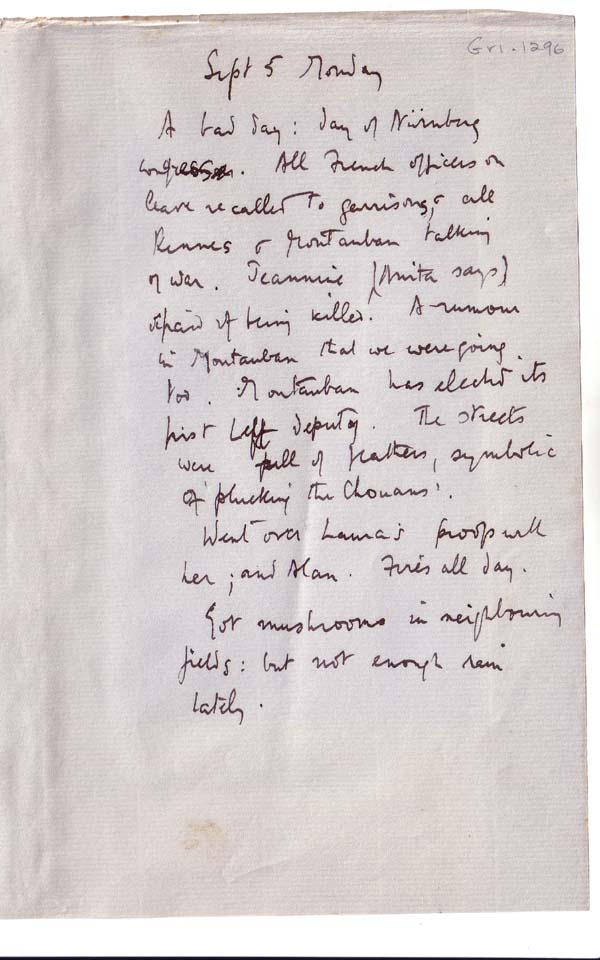 Gri.1296
Sept 5 Monday
A bad day: day of Nürnberg
congress. All French officers on
leave recalled to garrisons, & all
Rennes & Montauban talking
of war. Jeannie (Anita says)
afraid of being killed. A rumour
in Montauban that we were going
too. Montauban has elected its
first Left deputy. The streets
were full of feathers, symbolic
of 'plucking the Chouans'.
Went over Laura's proofs with
her; and Alan. Fires all day.
Got mushrooms in neighbouring
fields: but not enough rain
lately.